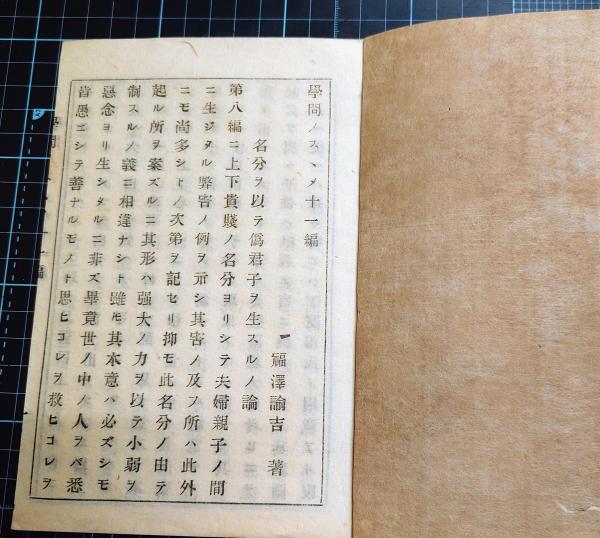 學問ノスヽメ十一編
福澤諭吉 著
名分ヲ以テ僞君子ヲ生スルノ論
第八編ニ上下貴賤ノ名分ヨリシテ夫婦親子ノ間
ニ生ジタル弊害ノ例ヲ示シ其害ノ及フ所ハ此外
ニモ尚多シトノ次第ヲ記セリ抑モ此名分ノ由テ
起ル所ヲ案ズルニ其形ハ强大ノ力ヲ以テ小弱ヲ
制スルノ義ニ相違ナシト雖モ其本意ハ必ズシモ
惡念ヨリ生シタルニ非ズ畢竟世ノ中ノ人ヲバ悉
皆愚ニシテ善ナルモノト思ヒコレヲ救ヒコレヲ
學問